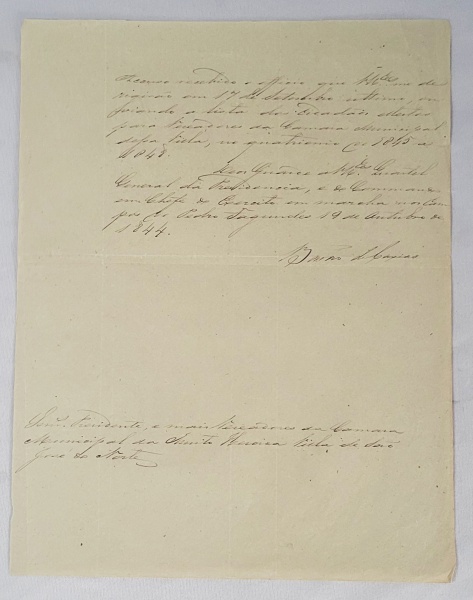 Accuso recebido o officio que VV.Ses me di
rigirão em 17 de Setembro ultimo, en
viando a lista dos Cidadãos eleitos
para Vereadores da Camara Municipal
dessa Villa, no quatriennio de 1845 a
1848.
Deos Guarde a VV.Ses Quartel
General da Presidencia, e do Commando
em Chefe do Exercito em marcha nos Cam
pos de Pedro Fagundes 19 de Outubro de
1844.
Barão de Caxias
Senr. Presidente, e mais Vereadores da Camara
Municipal da Villa de São
José do Norte